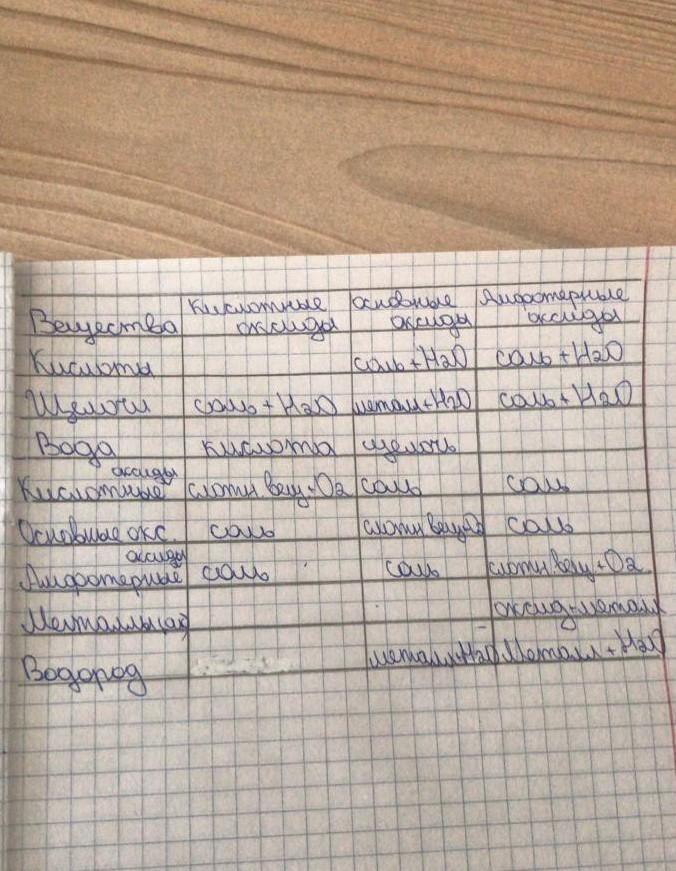 Вещества Кислотные оксиды основные оксиды Амфотерные оксиды
Кислоты соль + H2O соль + H2O
Щелочи соль + H2O металл + H2O соль + H2O
Вода кислота щелочь
Кислотные оксиды слотн вещ + O2 соль соль
Основные окс. соль слотн вещ соль
Амфотерные оксиды соль соль слотн вещ + O2
оксид + металл
Водород металл + H2O Металл + H2O